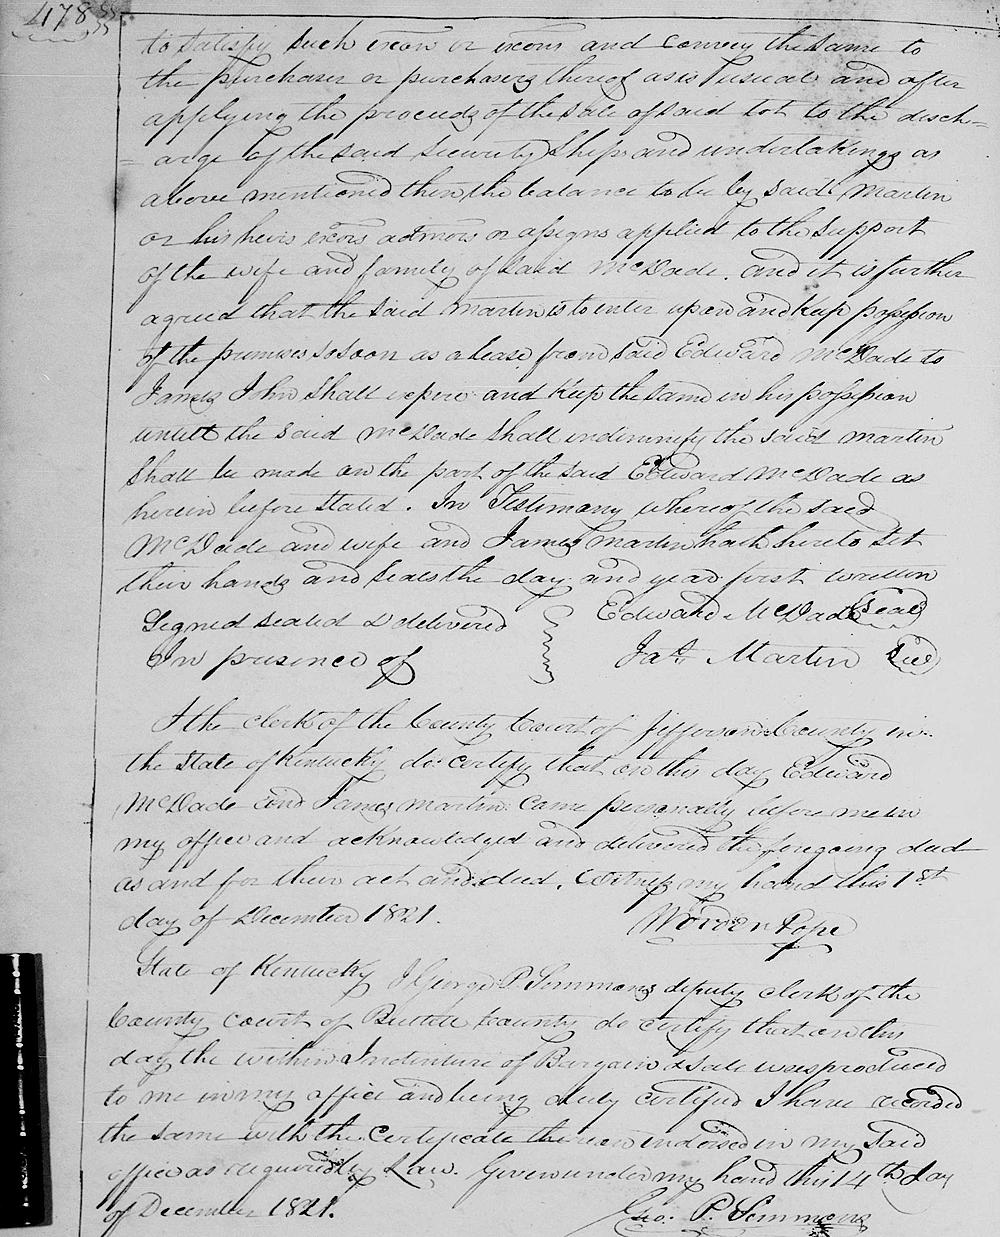 478
to satisfy such exon or exons and convey the same to
the purchaser or purchasers thereof as is usual and after
applying the proceeds of the sale of said lot to the disch=
=arge of the said security Ships and undertakings as
above mentioned then the balance to be by said Martin
or his heirs exors admors or assigns applied to the support
of the wife and family of said McDade. and it is further
agreed that the said Martin is to enter upon and keep possession
of the premises so soon as a lease from said Edward McDade to
James John shall expire and keep the same in his possession
untill the said McDade shall indemnify the said Martin
shall be made on the part of the said Edward McDade as
herein before stated. In Testimony whereof the said
McDade and wife and James Martin hath hereto set
their hands and seals the day and year first written
Signed sealed & delivered Edward McDade Seal
In presence of Jas. Martin Seal
I the clerk of the County Court of Jefferson County in
the State of Kentucky do certify that on this day Edward
McDade and James Martin came personally before me in
my office and acknowledged and delivered the foregoing deed
as and for their act and deed. Witness my hand this 1st
day of December 1821. Worden Pope
State of Kentucky I George P. Simmons deputy clerk of the
County Court of Bullitt County do certify that on this
day the within Indenture of Bargain & Sale was produced
to me in my office and being duly certified I have recorded
the same with the Certificate thereon indorsed in my said
office as required by Law. Given under my hand this 14th day
of December 1821. Geo. P. Simmons